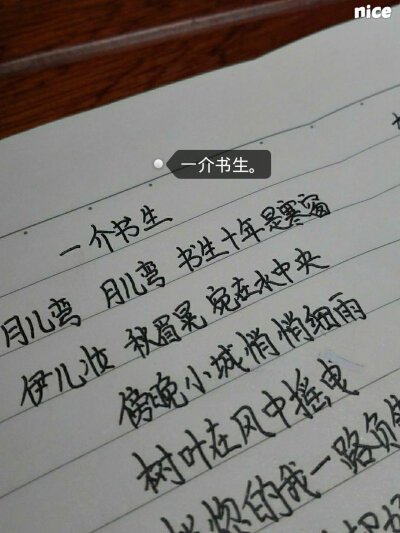 nice
一介书生。
一介书生
月儿弯 月儿弯 书生十年是寒窗
伊儿妆 秋眉晃 宛在水中央
傍晚小城悄悄细雨
树叶在风中摇曳
的我一路负